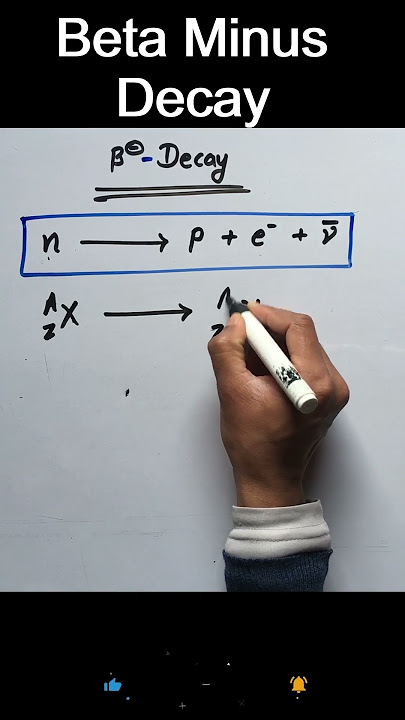 Beta Minus
Decay
β⊖-Decay
n ⟶ p + e⁻ + ν̄
ᴬ_Z X ⟶